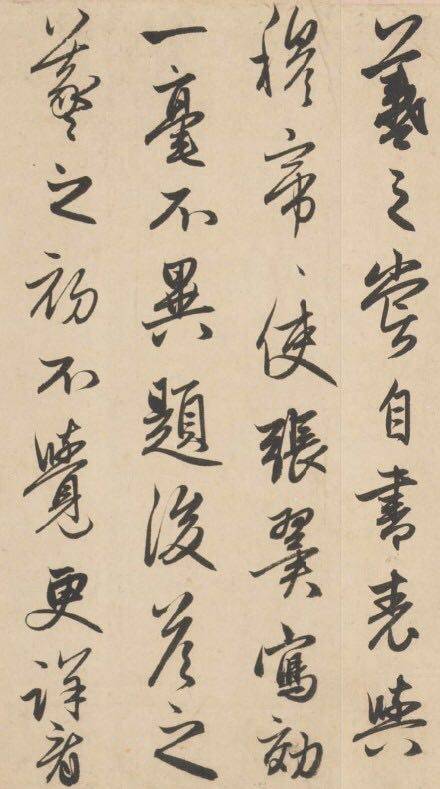 羲之嘗自書表與
穆帝〻使張翼寫効
一毫不異題後答之
羲之初不覺更詳看